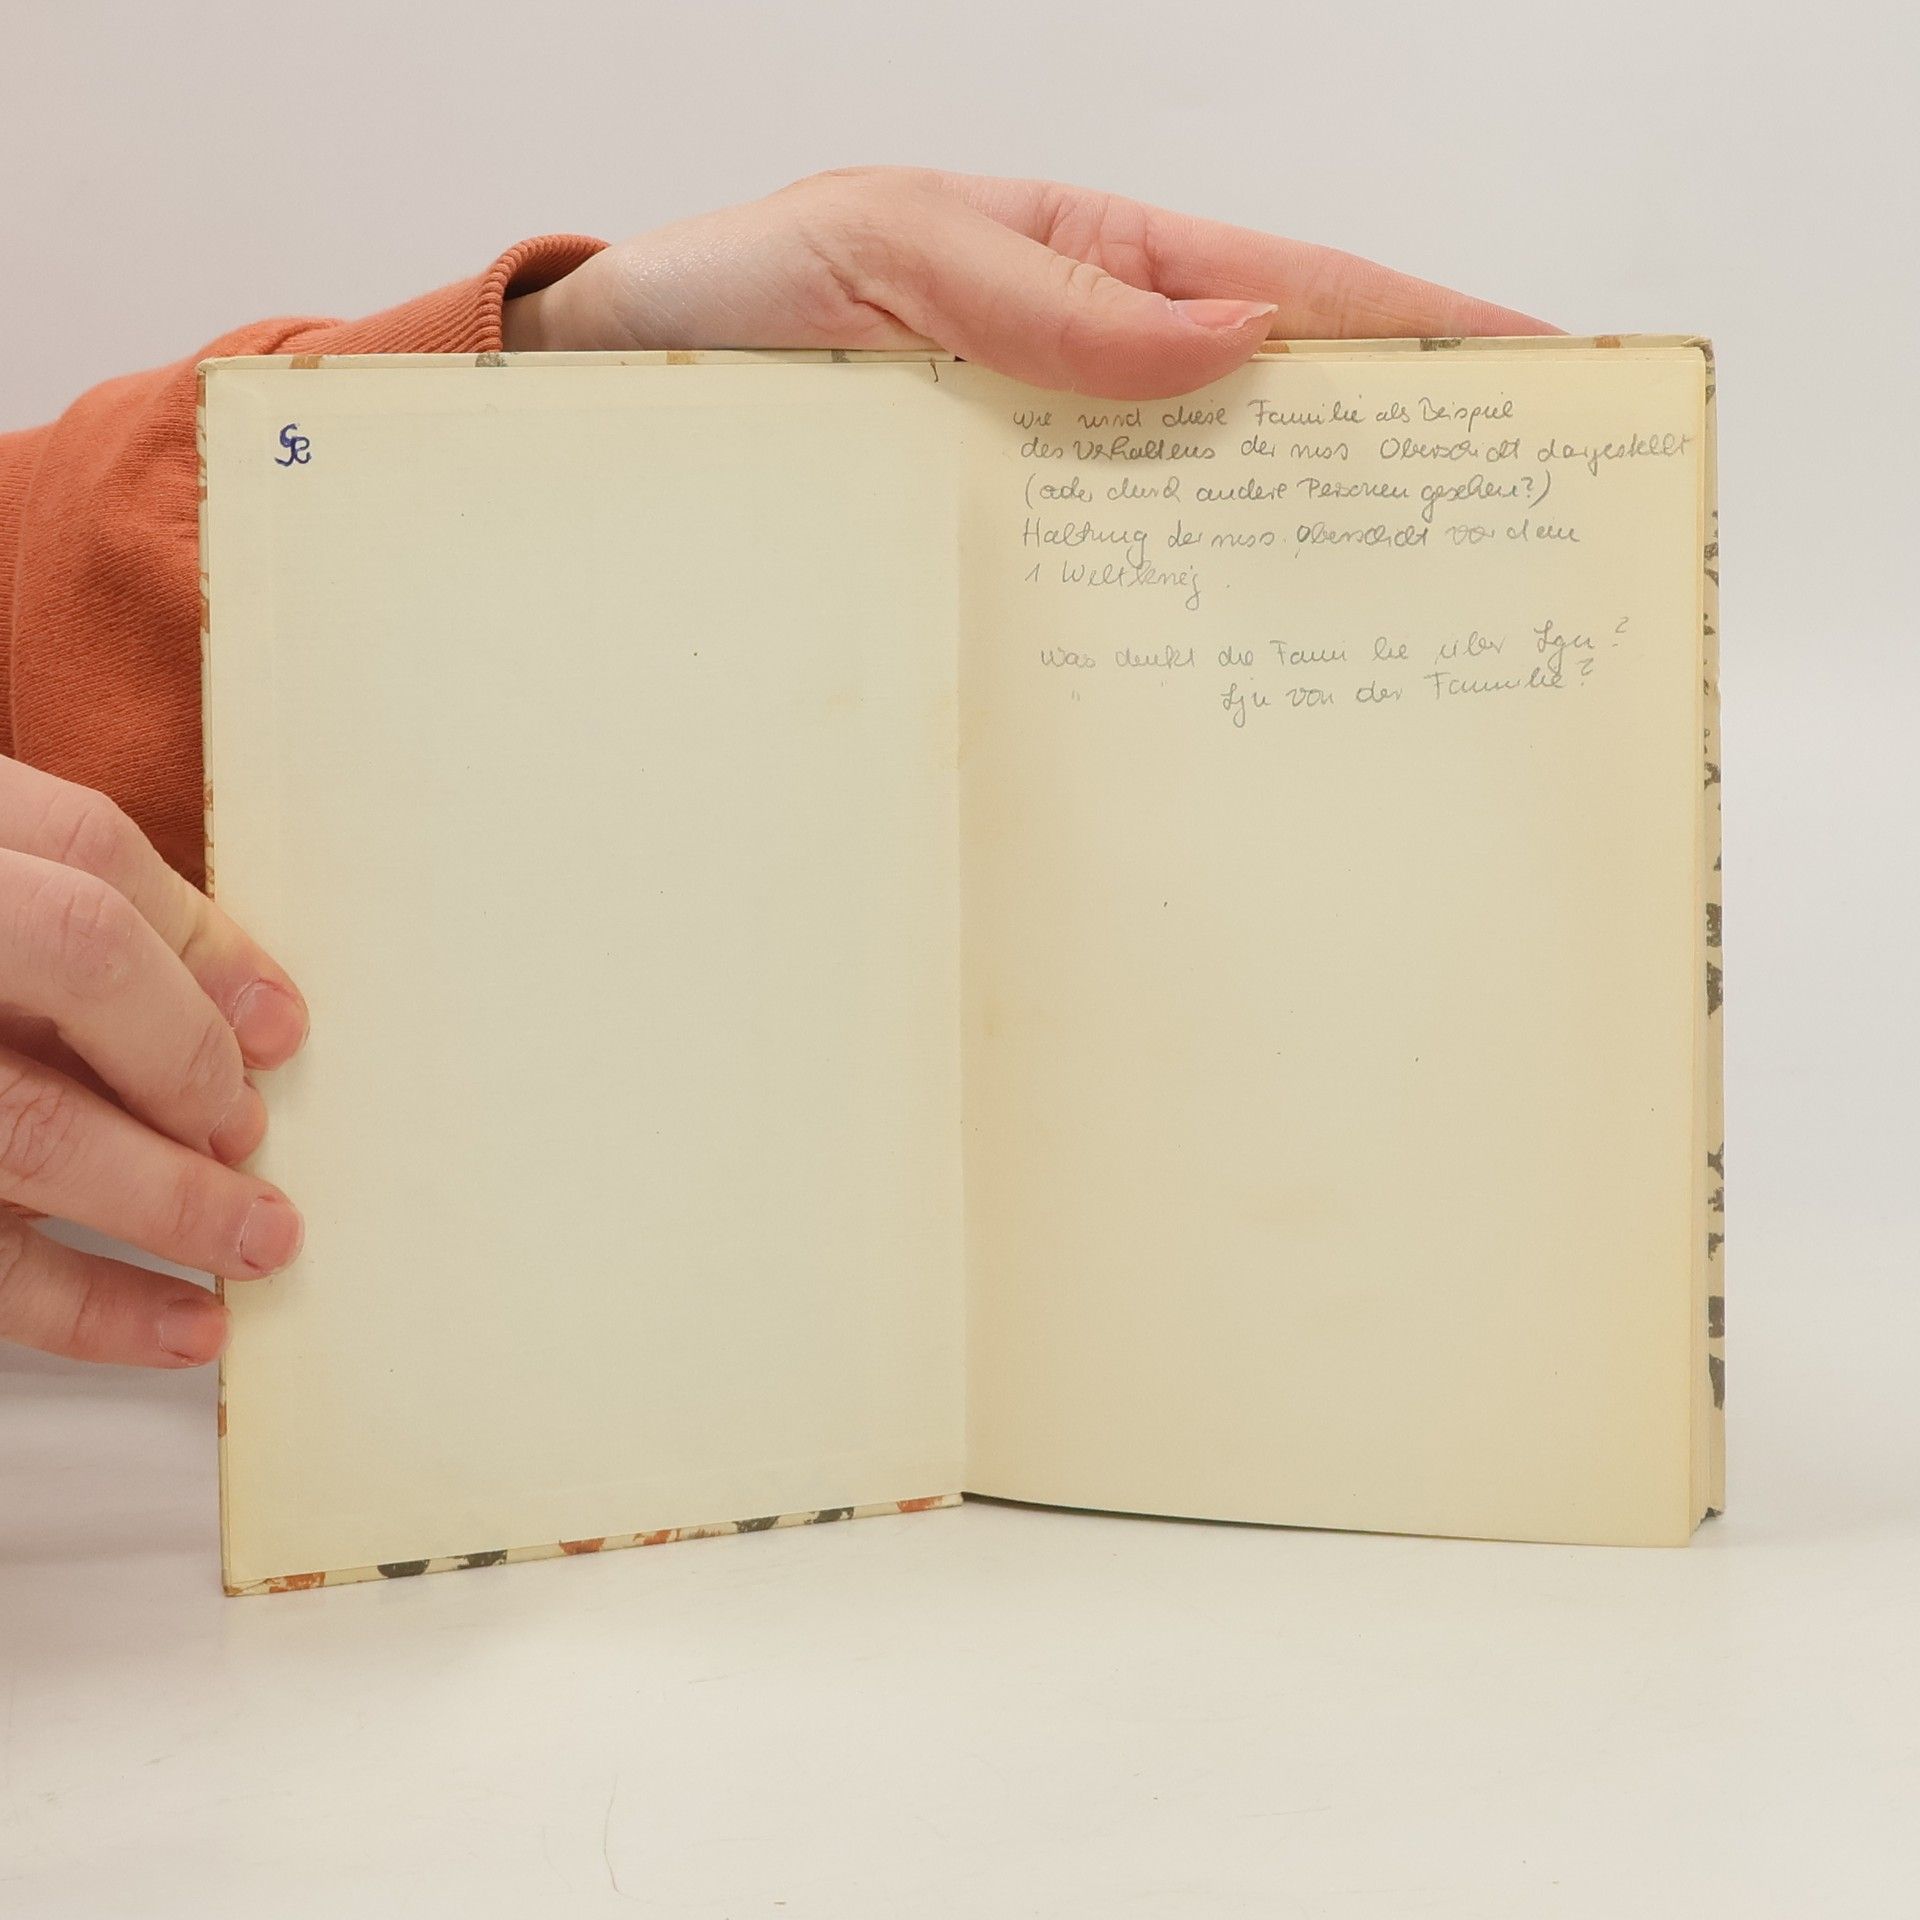 wie wird diese Familie als Beispiel
des Verhaltens der russ Oberschicht dargestellt
(oder durch andere Personen gesehen?)
Haltung der russ. Oberschicht vor dem
1 Weltkrieg.
Was denkt die Familie über ?
" " von der Familie?